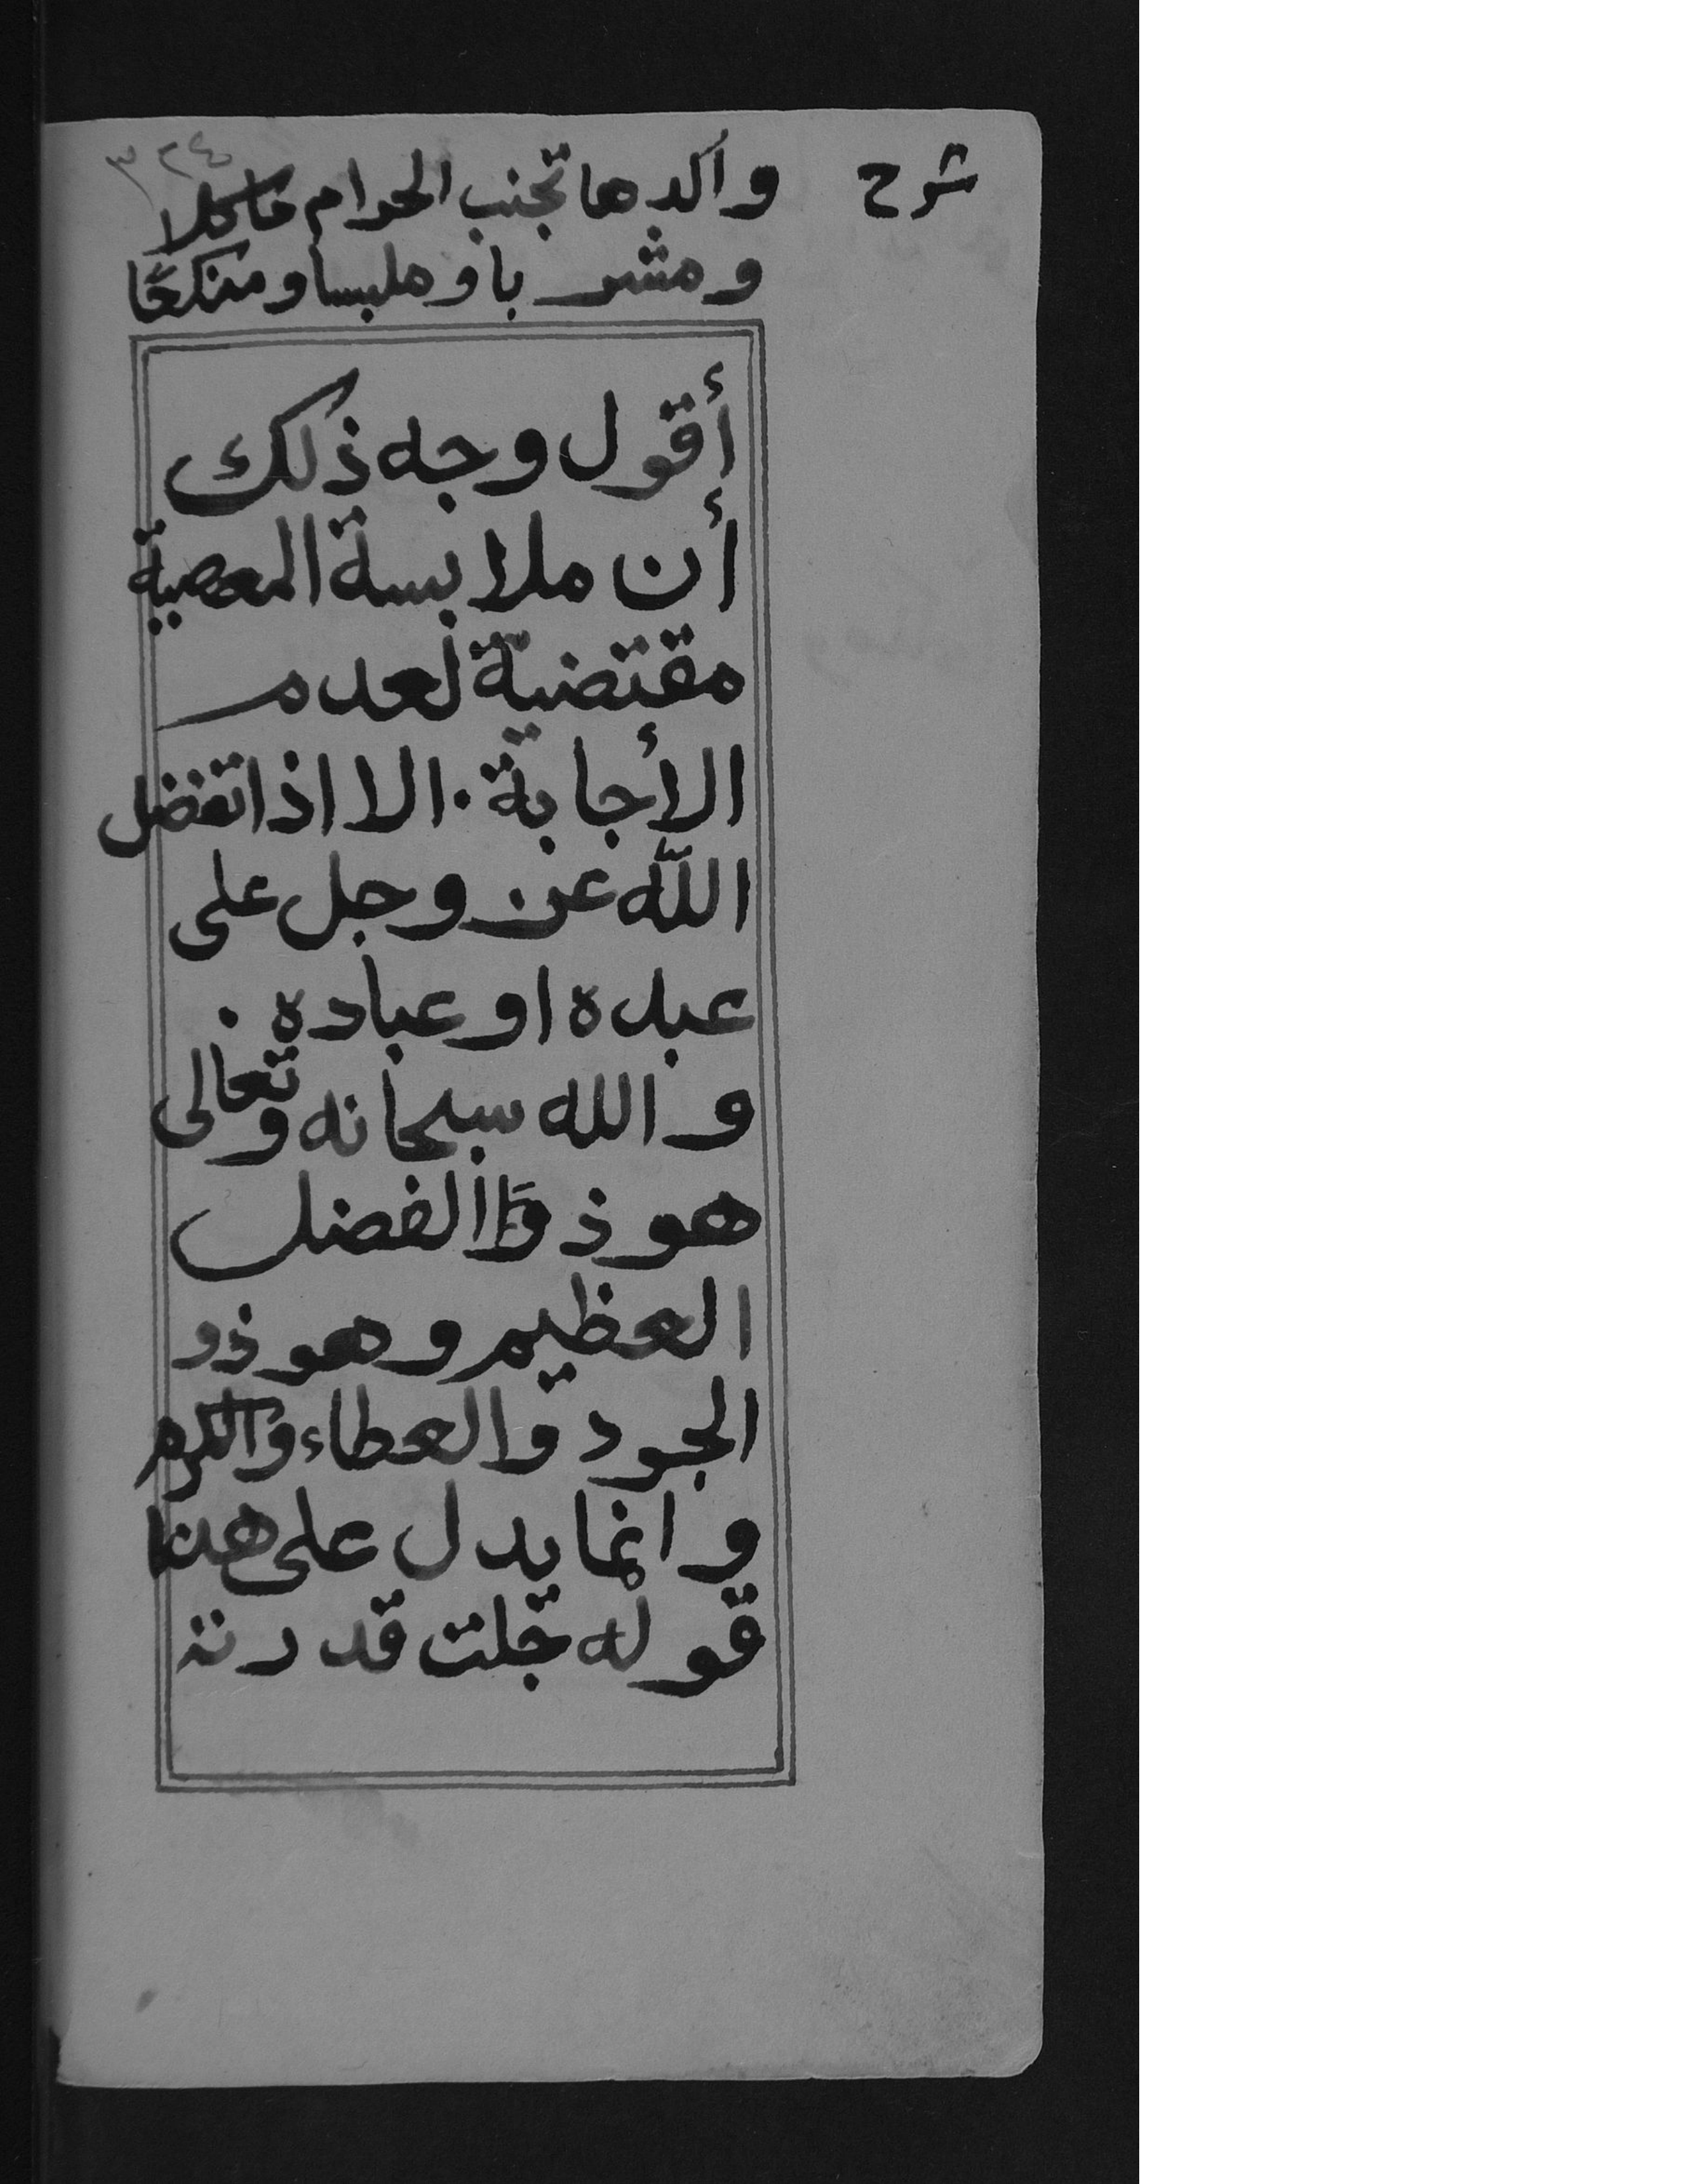 ٣٢٤
شرح
وآكدها تجنب الحرام مأكلا
ومشربا وملبسا ومنكحًا
أقول وجه ذلك
أن ملابسة المعصية
مقتضية لعدم
الأجابة. الا اذا تفضل
اللّه عز وجل على
عبده او عباده.
والله سبحانه وتعالى
هو ذو الفضل
العظيم وهو ذو
الجود والعطاء والكرم
وانما يدل على هذا
قوله جلت قدرته